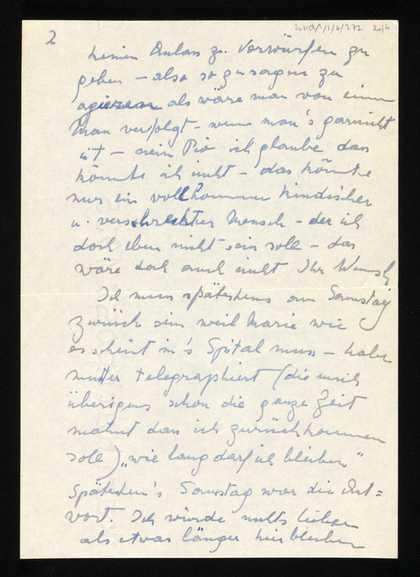 2
keinen Anlass zu Vorwürfen zu
geben – also sozusagen zu
agieren als wäre man von einem
Man verfolgt – wenn man's garnicht
ist – nein Pio ich glaube das
könnte ich nicht – das könnte
nur ein vollkommen kindischer
u. verschreckter Mensch – der ich
doch eben nicht sein soll – das
wäre doch auch nicht Ihr Wunsch
Ich muss spätestens am Samstag
zurück sein weil Marie wie
es scheint in's Spital muss – habe
mutter telegraphiert (die mich
übrigens schon die ganze Zeit
mahnt dass ich zurückkommen
solle) „wie lang darf ich bleiben"
Spätesten's Samstag war die Ant=
wort. Ich würde nichts lieber
als etwas länger hier bleiben